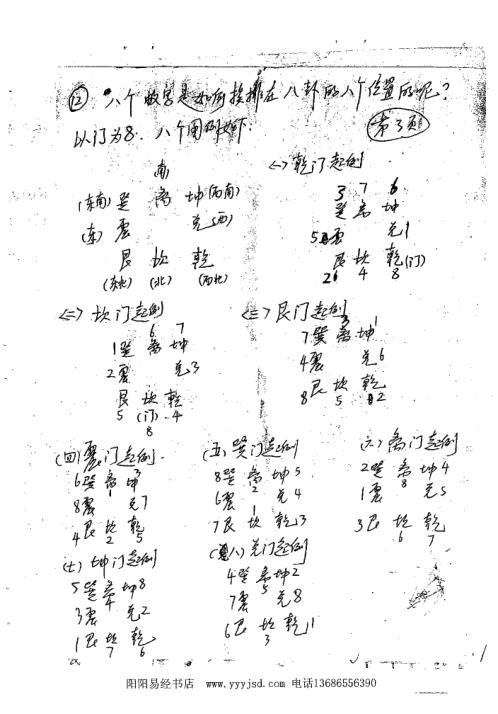 ⑫ 八个数字是如何按排在八卦的八个位置的呢?
以门为8. 八个用例如下: 第3页
南
(东南)巽 离 坤(西南)
(东)震 兑(西)
艮 坎 乾
(东北) (北) (西北)
<一>乾门起例
3 7 6
巽 离 坤
5震 兑1
艮 坎 乾(门)
2 4 8
<二>坎门起例
6 7
1巽 离 坤
2震 兑3
艮 坎 乾
5 (门) 4
8
<三>艮门起例
3 1
7巽 离 坤
4震 兑6
8艮 坎 乾
5 2
(四)震门起例
3
6巽 离 坤
1
8震 兑7
4艮 坎 乾
2 5
(五)巽门起例
8巽 离 坤5
2
6震 兑4
1
7艮 坎 乾3
(六)离门起例
2巽 离 坤4
8
1震 兑5
3艮 坎 乾
6 7
(七)坤门起例
5巽 离 坤8
4
3震 兑2
1艮 坎 乾
7 6
(八)兑门起例
4巽 离 坤2
5
7震 兑8
6艮 坎 乾1
3
阳阳易经书店 www.yyyjsd.com 电话13686556390